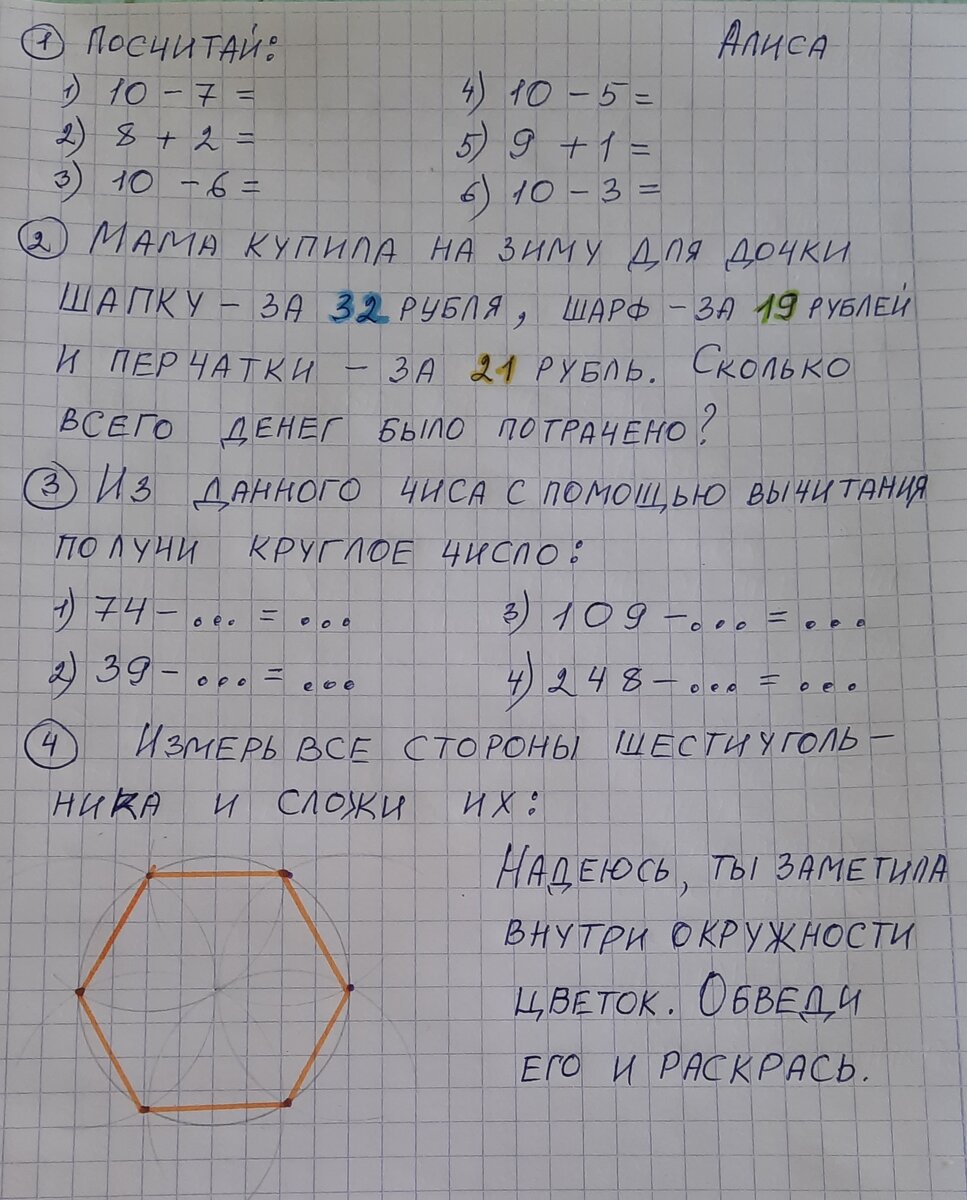 1 Посчитай: Алиса
1) 10 - 7 = 4) 10 - 5 =
2) 8 + 2 = 5) 9 + 1 =
3) 10 - 6 = 6) 10 - 3 =
2 Мама купила на зиму для дочки
шапку - за 32 рубля, шарф - за 19 рублей
и перчатки - за 21 рубль. Сколько
всего денег было потрачено?
3 Из данного чиса с помощью вычитания
получи круглое число:
1) 74 - ... = ... 3) 109 - ... = ...
2) 39 - ... = ... 4) 248 - ... = ...
4 Измерь все стороны шестиуголь-
ника и сложи их:
Надеюсь, ты заметила
внутри окружности
цветок. Обведи
его и раскрась.